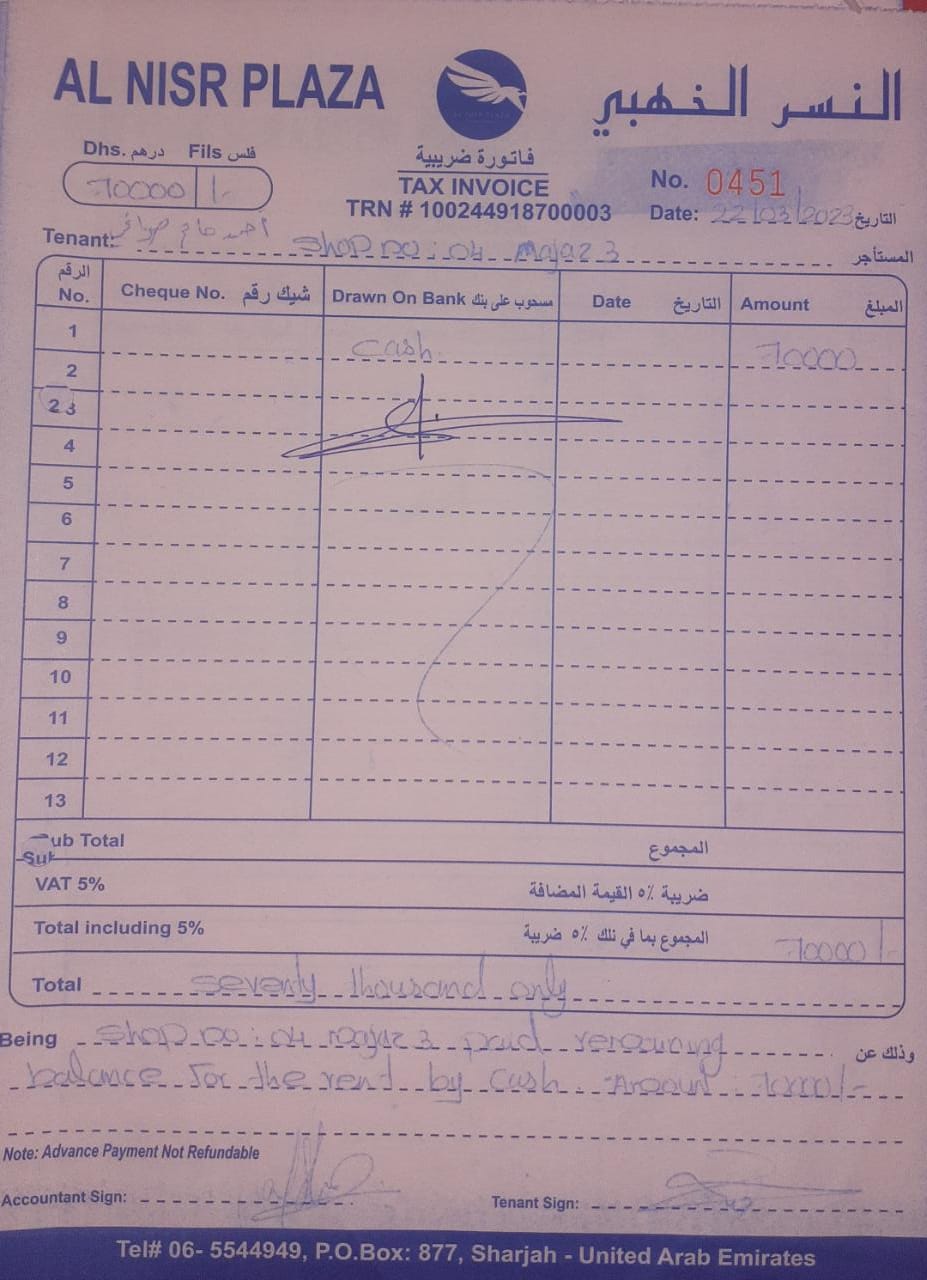 AL NISR PLAZA
النسر الخهبي
Dhs. درهم Fils فلس
70000/-
فاتورة ضريبية
TAX INVOICE
TRN # 100244918700003
No. 0451
Date: 22/03/2023 التاريخ
Tenant: Shop no: 04 Majaz 3 المستأجر
الرقم No. Cheque No. شيك رقم Drawn On Bank مسحوب على بنك Date التاريخ Amount المبلغ
1 Cash 70000
2
2 3
4
5
6
7
8
9
10
11
12
13
Sub Total المجموع
VAT 5% ضريبة ٥٪ القيمة المضافة
Total including 5% المجموع بما في ذلك ٥٪ ضريبة 70000/-
Total seventy thousand only
Being Shop no: 04 Majaz 3 paid remaining وذلك عن
balance for the rent by cash. Amount: 70000/-
Note: Advance Payment Not Refundable
Accountant Sign:
Tenant Sign:
Tel# 06- 5544949, P.O.Box: 877, Sharjah - United Arab Emirates